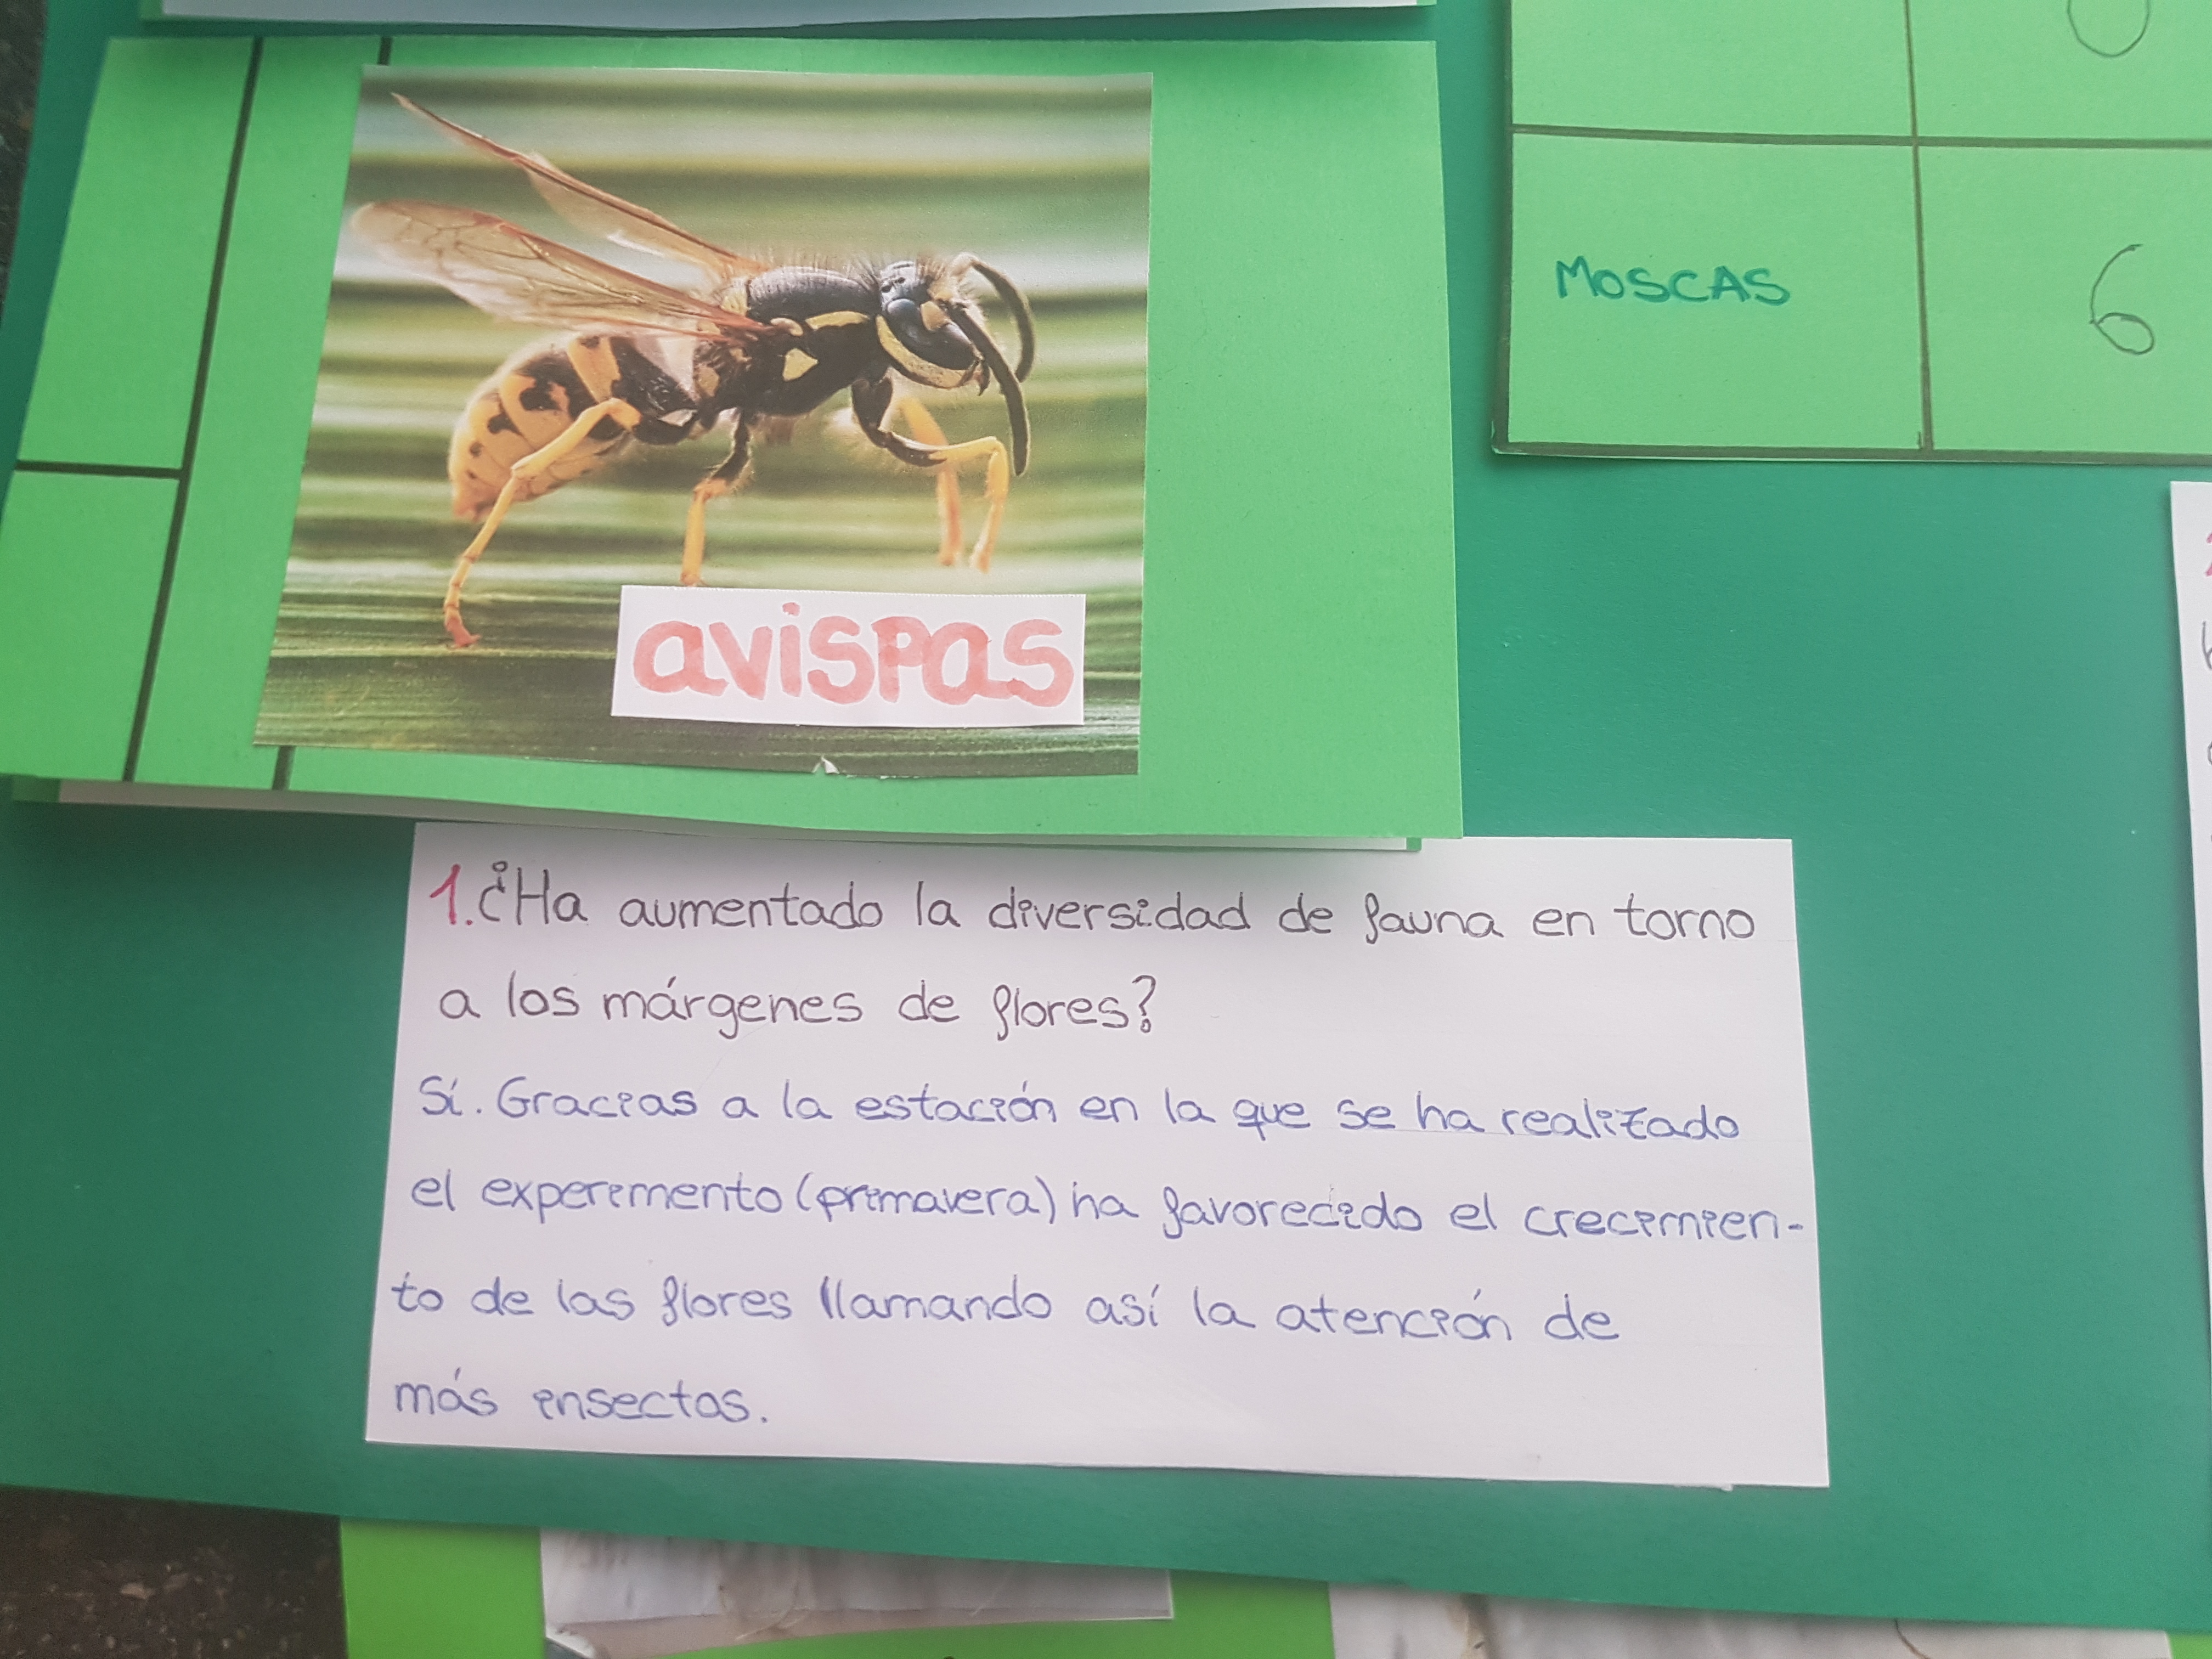 MOSCAS
6
avispas
1. ¿Ha aumentado la diversidad de fauna en torno
a los márgenes de flores?
Sí. Gracias a la estación en la que se ha realizado
el experimento (primavera) ha favorecido el crecimien-
to de las flores llamando así la atención de
más insectos.